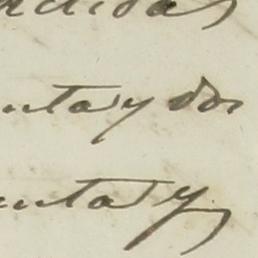 ndidas
nta y dos
enta y